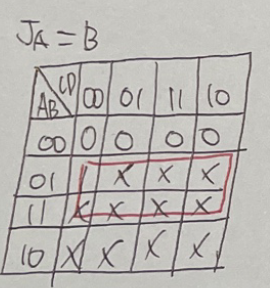 JA = B
CD
AB
00 01 11 10
00 0 0 0 0
01 X X X
11 X X X X
10 X X X X